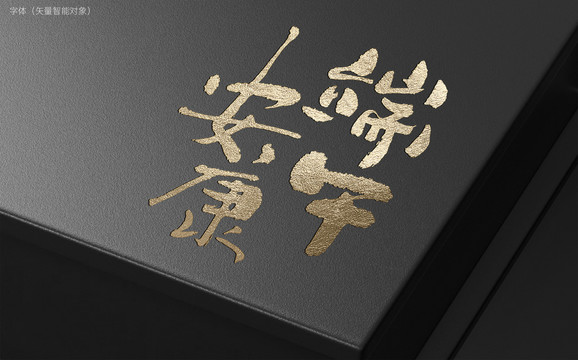 字体（矢量智能对象）
端午
安康